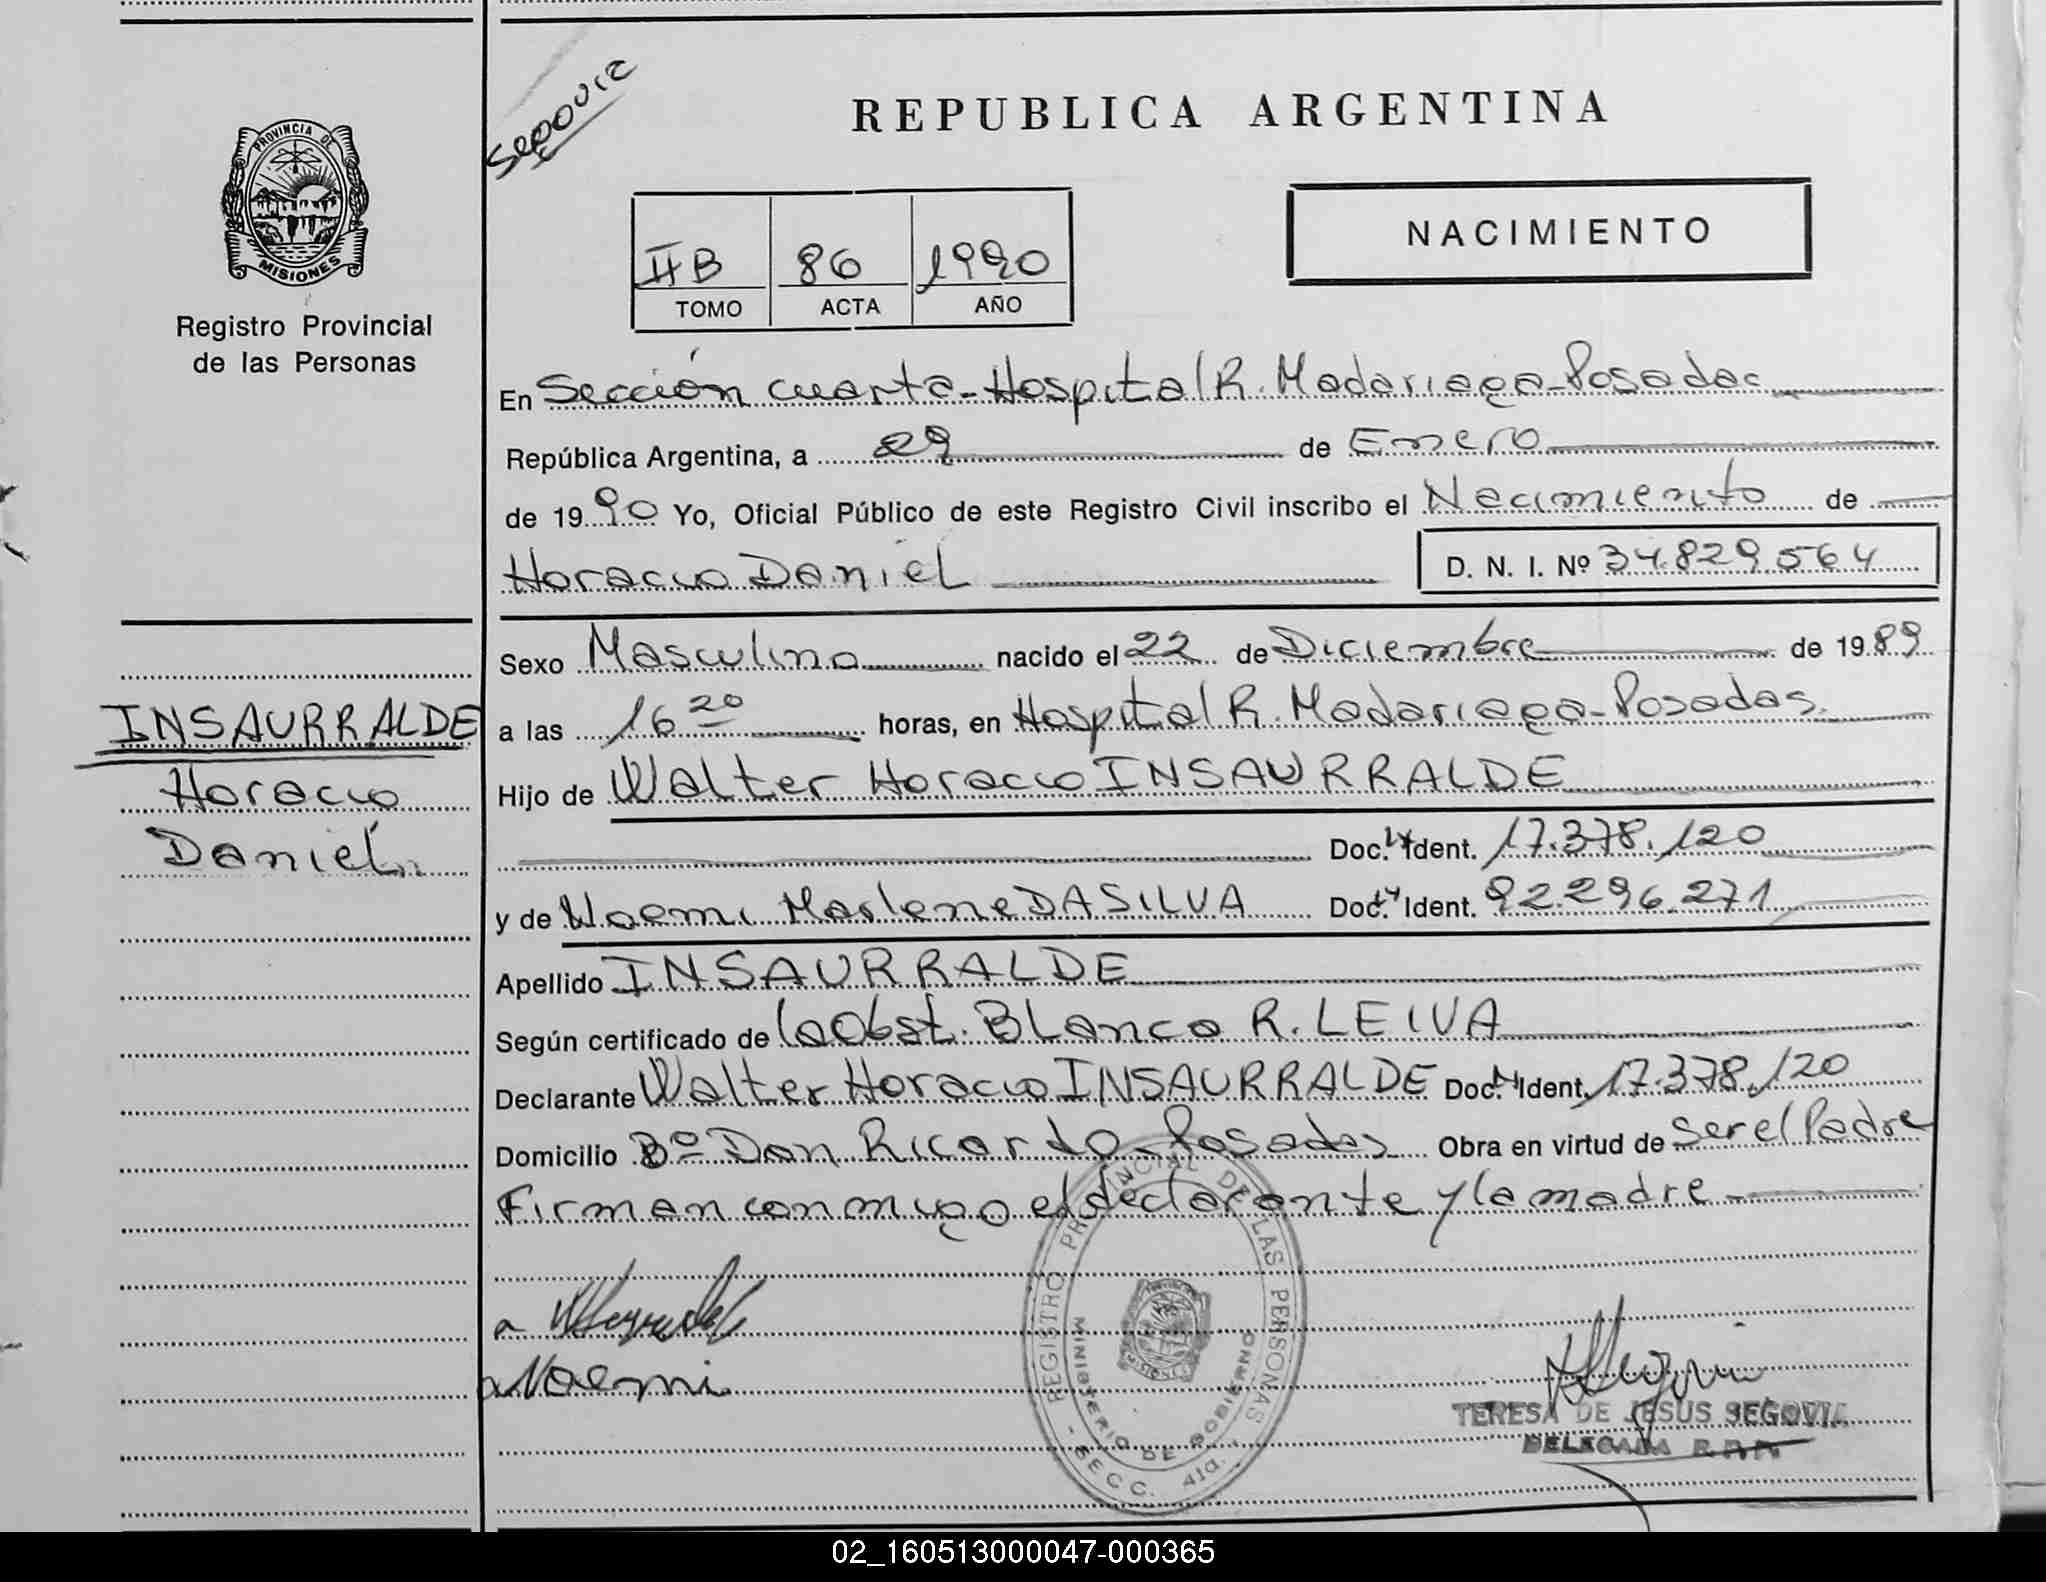 REPUBLICA ARGENTINA
PROVINCIA DE MISIONES
Registro Provincial
de las Personas
IIB 86 1990
TOMO ACTA AÑO
NACIMIENTO
En Sección cuarta - Hospital R. Madariaga - Posadas
República Argentina, a 29 de Enero
de 1990 Yo, Oficial Público de este Registro Civil inscribo el Nacimiento de
Horacio Daniel D. N. I. Nº 34.829.564
Sexo Masculino nacido el 22 de Diciembre de 1989
INSAURRALDE
Horacio
Daniel
a las 16 20 horas, en Hospital R. Madariaga - Posadas.
Hijo de Walter Horacio INSAURRALDE
Doc. Ident. 17.378.120
y de Noemi Marlene DA SILVA Doc. Ident. 92.296.271
Apellido INSAURRALDE
Según certificado de la Obst. Blanca R. LEIVA
Declarante Walter Horacio INSAURRALDE Doc. Ident. 17.378.120
Domicilio Bº Don Ricardo - Posadas Obra en virtud de ser el Padre
Firman conmigo el declarante y la madre -
Noemi
REGISTRO PROVINCIAL DE LAS PERSONAS
MINISTERIO DE GOBIERNO
- SECC. 4ta. -
MISIONES
TERESA DE JESUS SEGOVIA
DELEGADA R.P.P.
02_160513000047-000365